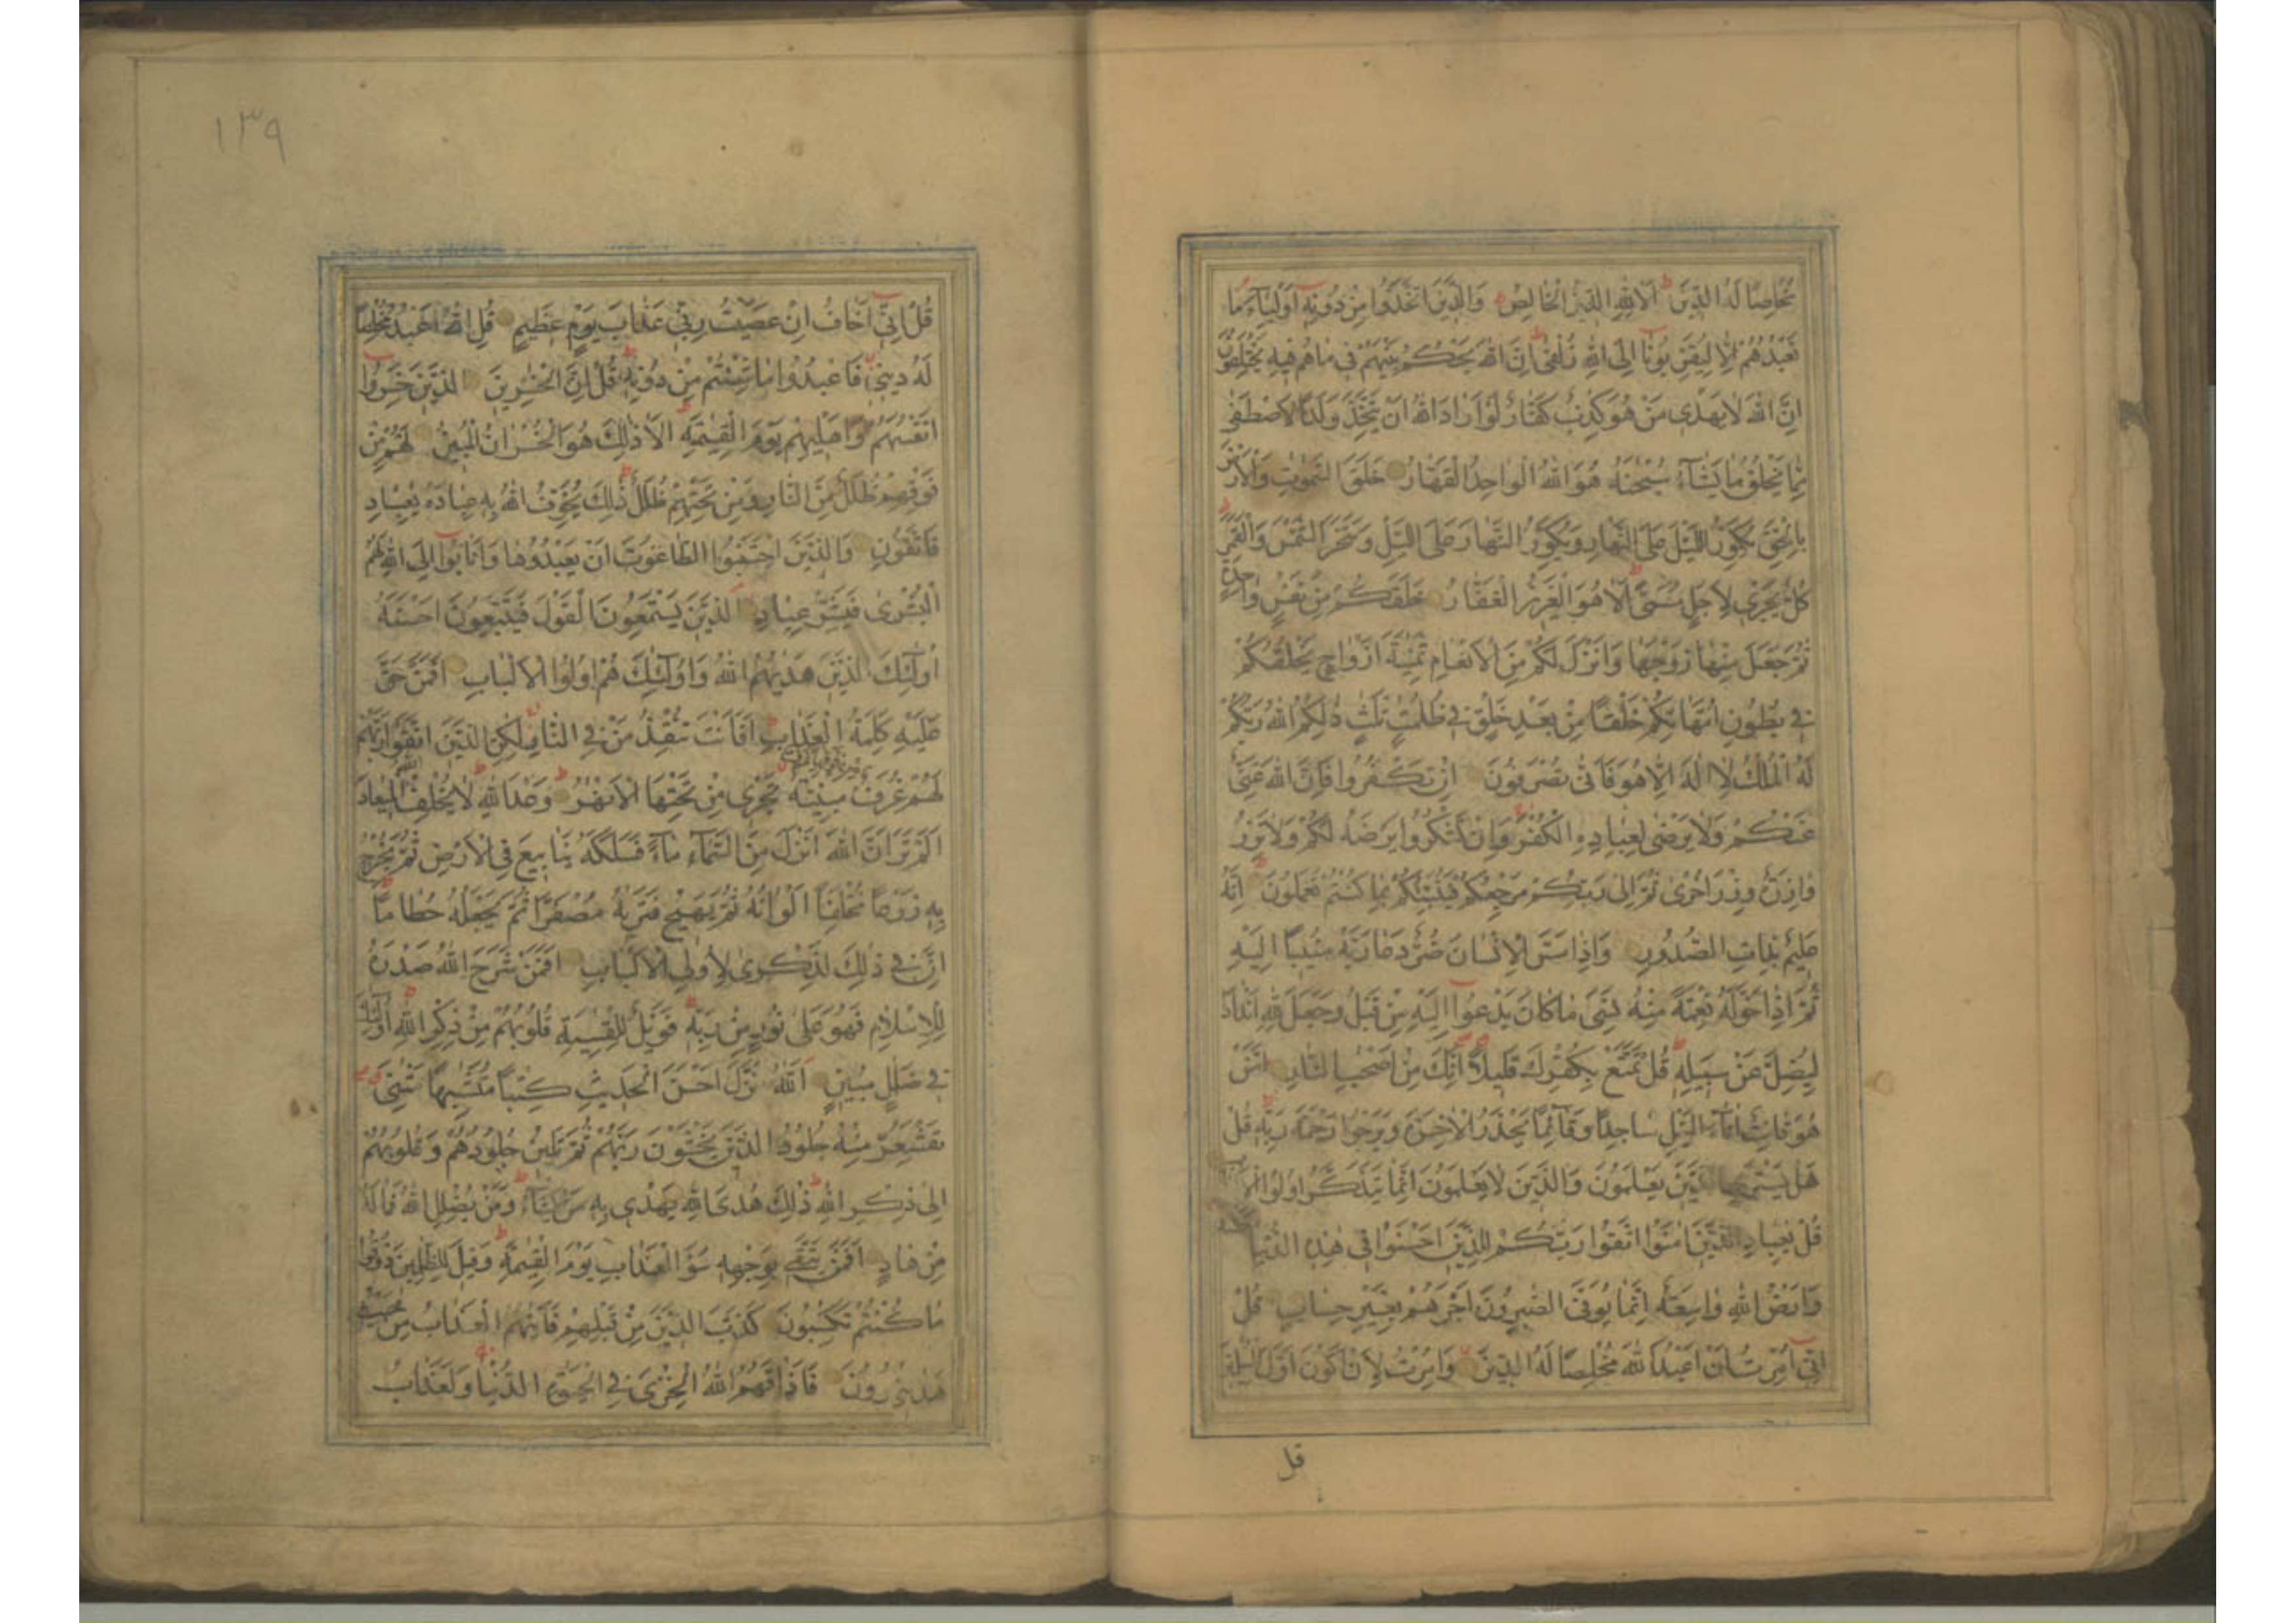 مُخْلِصًا لَهُ الدِّينَ اَلَا لِلّٰهِ الدِّينُ الْخَالِصُ وَالَّذِينَ اتَّخَذُوا مِنْ دُونِهٖٓ اَوْلِيَآءَ مَا
نَعْبُدُهُمْ اِلَّا لِيُقَرِّبُونَا اِلَى اللّٰهِ زُلْفٰى اِنَّ اللّٰهَ يَحْكُمُ بَيْنَهُمْ فِى مَا هُمْ فِيهِ يَخْتَلِفُونَ
اِنَّ اللّٰهَ لَا يَهْدِى مَنْ هُوَ كٰذِبٌ كَفَّارٌ لَوْ اَرَادَ اللّٰهُ اَنْ يَتَّخِذَ وَلَدًا لَاصْطَفٰى
مِمَّا يَخْلُقُ مَا يَشَآءُ سُبْحٰنَهُ هُوَ اللّٰهُ الْوَاحِدُ الْقَهَّارُ خَلَقَ السَّمٰوٰتِ وَالْاَرْضَ
بِالْحَقِّ يُكَوِّرُ اللَّيْلَ عَلَى النَّهَارِ وَيُكَوِّرُ النَّهَارَ عَلَى اللَّيْلِ وَسَخَّرَ الشَّمْسَ وَالْقَمَرَ
كُلٌّ يَجْرِى لِاَجَلٍ مُسَمًّى اَلَا هُوَ الْعَزِيزُ الْغَفَّارُ خَلَقَكُمْ مِنْ نَفْسٍ وَاحِدَةٍ
ثُمَّ جَعَلَ مِنْهَا زَوْجَهَا وَاَنْزَلَ لَكُمْ مِنَ الْاَنْعَامِ ثَمٰنِيَةَ اَزْوَاجٍ يَخْلُقُكُمْ
فِى بُطُونِ اُمَّهَاتِكُمْ خَلْقًا مِنْ بَعْدِ خَلْقٍ فِى ظُلُمٰتٍ ثَلٰثٍ ذٰلِكُمُ اللّٰهُ رَبُّكُمْ
لَهُ الْمُلْكُ لَا اِلٰهَ اِلَّا هُوَ فَاَنّٰى تُصْرَفُونَ اِنْ تَكْفُرُوا فَاِنَّ اللّٰهَ غَنِىٌّ
عَنْكُمْ وَلَا يَرْضٰى لِعِبَادِهِ الْكُفْرَ وَاِنْ تَشْكُرُوا يَرْضَهُ لَكُمْ وَلَا تَزِرُ
وَازِرَةٌ وِزْرَ اُخْرٰى ثُمَّ اِلٰى رَبِّكُمْ مَرْجِعُكُمْ فَيُنَبِّئُكُمْ بِمَا كُنْتُمْ تَعْمَلُونَ اِنَّهُ
عَلِيمٌ بِذَاتِ الصُّدُورِ وَاِذَا مَسَّ الْاِنْسَانَ ضُرٌّ دَعَا رَبَّهُ مُنِيبًا اِلَيْهِ
ثُمَّ اِذَا خَوَّلَهُ نِعْمَةً مِنْهُ نَسِىَ مَا كَانَ يَدْعُوٓا اِلَيْهِ مِنْ قَبْلُ وَجَعَلَ لِلّٰهِ اَنْدَادًا
لِيُضِلَّ عَنْ سَبِيلِهٖ قُلْ تَمَتَّعْ بِكُفْرِكَ قَلِيلًا اِنَّكَ مِنْ اَصْحٰبِ النَّارِ اَمَّنْ
هُوَ قَانِتٌ اٰنَآءَ اللَّيْلِ سَاجِدًا وَقَآئِمًا يَحْذَرُ الْاٰخِرَةَ وَيَرْجُوا رَحْمَةَ رَبِّهٖ قُلْ
هَلْ يَسْتَوِى الَّذِينَ يَعْلَمُونَ وَالَّذِينَ لَا يَعْلَمُونَ اِنَّمَا يَتَذَكَّرُ اُولُوا الْاَلْبَابِ
قُلْ يٰعِبَادِ الَّذِينَ اٰمَنُوا اتَّقُوا رَبَّكُمْ لِلَّذِينَ اَحْسَنُوا فِى هٰذِهِ الدُّنْيَا حَسَنَةٌ
وَاَرْضُ اللّٰهِ وَاسِعَةٌ اِنَّمَا يُوَفَّى الصّٰبِرُونَ اَجْرَهُمْ بِغَيْرِ حِسَابٍ قُلْ
اِنِّىٓ اُمِرْتُ اَنْ اَعْبُدَ اللّٰهَ مُخْلِصًا لَهُ الدِّينَ وَاُمِرْتُ لِاَنْ اَكُونَ اَوَّلَ الْمُسْلِمِينَ
قل
١٣٩
قُلْ اِنِّىٓ اَخَافُ اِنْ عَصَيْتُ رَبِّى عَذَابَ يَوْمٍ عَظِيمٍ قُلِ اللّٰهَ اَعْبُدُ مُخْلِصًا
لَهُ دِينِى فَاعْبُدُوا مَا شِئْتُمْ مِنْ دُونِهٖ قُلْ اِنَّ الْخٰسِرِينَ الَّذِينَ خَسِرُوٓا
اَنْفُسَهُمْ وَاَهْلِيهِمْ يَوْمَ الْقِيٰمَةِ اَلَا ذٰلِكَ هُوَ الْخُسْرَانُ الْمُبِينُ لَهُمْ مِنْ
فَوْقِهِمْ ظُلَلٌ مِنَ النَّارِ وَمِنْ تَحْتِهِمْ ظُلَلٌ ذٰلِكَ يُخَوِّفُ اللّٰهُ بِهٖ عِبَادَهُ يٰعِبَادِ
فَاتَّقُونِ وَالَّذِينَ اجْتَنَبُوا الطَّاغُوتَ اَنْ يَعْبُدُوهَا وَاَنَابُوٓا اِلَى اللّٰهِ لَهُمُ
الْبُشْرٰى فَبَشِّرْ عِبَادِ الَّذِينَ يَسْتَمِعُونَ الْقَوْلَ فَيَتَّبِعُونَ اَحْسَنَهُ
اُولٰٓئِكَ الَّذِينَ هَدٰيهُمُ اللّٰهُ وَاُولٰٓئِكَ هُمْ اُولُوا الْاَلْبَابِ اَفَمَنْ حَقَّ
عَلَيْهِ كَلِمَةُ الْعَذَابِ اَفَاَنْتَ تُنْقِذُ مَنْ فِى النَّارِ لٰكِنِ الَّذِينَ اتَّقَوْا رَبَّهُمْ
لَهُمْ غُرَفٌ مَبْنِيَّةٌ تَجْرِى مِنْ تَحْتِهَا الْاَنْهٰرُ وَعْدَ اللّٰهِ لَا يُخْلِفُ اللّٰهُ الْمِيعَادَ
اَلَمْ تَرَ اَنَّ اللّٰهَ اَنْزَلَ مِنَ السَّمَآءِ مَآءً فَسَلَكَهُ يَنَابِيعَ فِى الْاَرْضِ ثُمَّ يُخْرِجُ
بِهٖ زَرْعًا مُخْتَلِفًا اَلْوَانُهُ ثُمَّ يَهِيجُ فَتَرٰيهُ مُصْفَرًّا ثُمَّ يَجْعَلُهُ حُطَامًا
اِنَّ فِى ذٰلِكَ لَذِكْرٰى لِاُولِى الْاَلْبَابِ اَفَمَنْ شَرَحَ اللّٰهُ صَدْرَهُ
لِلْاِسْلَامِ فَهُوَ عَلٰى نُورٍ مِنْ رَبِّهٖ فَوَيْلٌ لِلْقٰسِيَةِ قُلُوبُهُمْ مِنْ ذِكْرِ اللّٰهِ اُولٰٓئِكَ
فِى ضَلٰلٍ مُبِينٍ اَللّٰهُ نَزَّلَ اَحْسَنَ الْحَدِيثِ كِتٰبًا مُتَشٰبِهًا مَثَانِىَ
تَقْشَعِرُّ مِنْهُ جُلُودُ الَّذِينَ يَخْشَوْنَ رَبَّهُمْ ثُمَّ تَلِينُ جُلُودُهُمْ وَقُلُوبُهُمْ
اِلٰى ذِكْرِ اللّٰهِ ذٰلِكَ هُدَى اللّٰهِ يَهْدِى بِهٖ مَنْ يَشَآءُ وَمَنْ يُضْلِلِ اللّٰهُ فَمَا لَهُ
مِنْ هَادٍ اَفَمَنْ يَتَّقِى بِوَجْهِهٖ سُوٓءَ الْعَذَابِ يَوْمَ الْقِيٰمَةِ وَقِيلَ لِلظّٰلِمِينَ ذُوقُوا
مَا كُنْتُمْ تَكْسِبُونَ كَذَّبَ الَّذِينَ مِنْ قَبْلِهِمْ فَاَتٰيهُمُ الْعَذَابُ مِنْ حَيْثُ
لَا يَشْعُرُونَ فَاَذَاقَهُمُ اللّٰهُ الْخِزْىَ فِى الْحَيٰوةِ الدُّنْيَا وَلَعَذَابُ